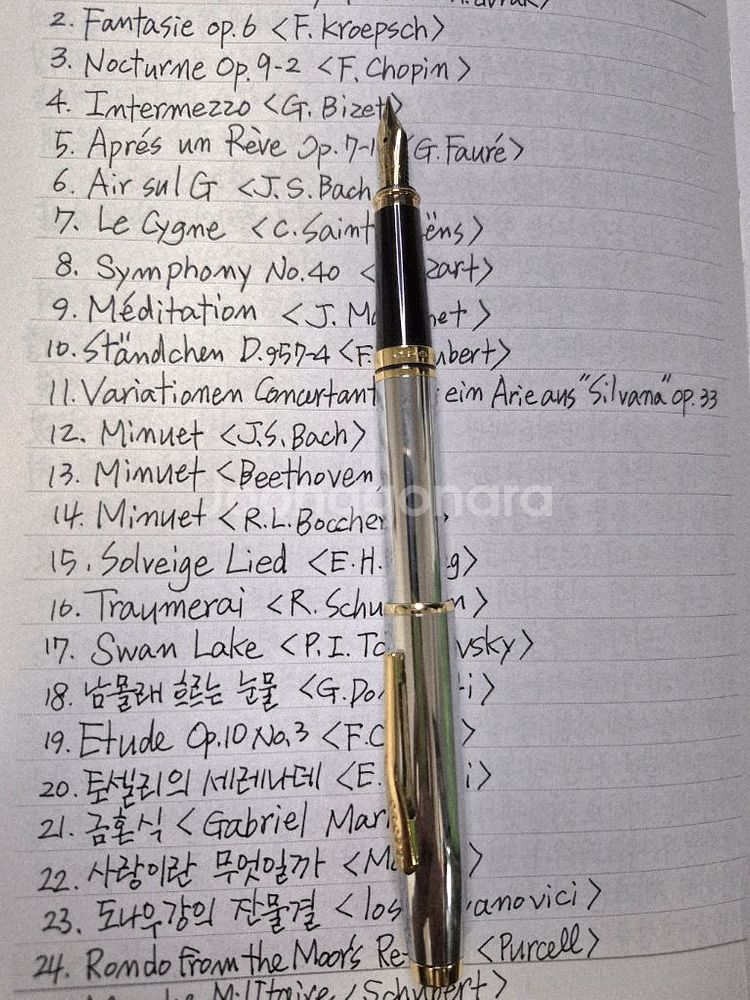 2. Fantasie op.6 <F. Kroepsch>
3. Nocturne Op.9-2 <F. Chopin>
4. Intermezzo <G. Bizet>
5. Aprés un Rêve Op.7-1 <G. Fauré>
6. Air sul G <J.S. Bach
7. Le Cygne <C. Saint ëns>
8. Symphony No.40 < zart>
9. Méditation <J. Ma net>
10. Ständchen D.957-4 <F. ubert>
11. Variationen Concertant ein Arie aus "Silvana" op.33
12. Minuet <J.S. Bach>
13. Minuet <Beethoven
14. Minuet <R.L. Boccher
15. Solveige Lied <E.H. g>
16. Traumerai <R. Schu n>
17. Swan Lake <P.I. Tc vsky>
18. 남몰래 흐르는 눈물 <G. Do i>
19. Etude Op.10 No.3 <F.C >
20. 토셀리의 세레나데 <E. i>
21. 금혼식 <Gabriel Mar
22. 사랑이란 무엇일까 <M >
23. 도나우강의 잔물결 <Ios vanovici>
24. Rondo from the Moor's Re- <Purcell>
Militaire <Schubert>
Joongonara